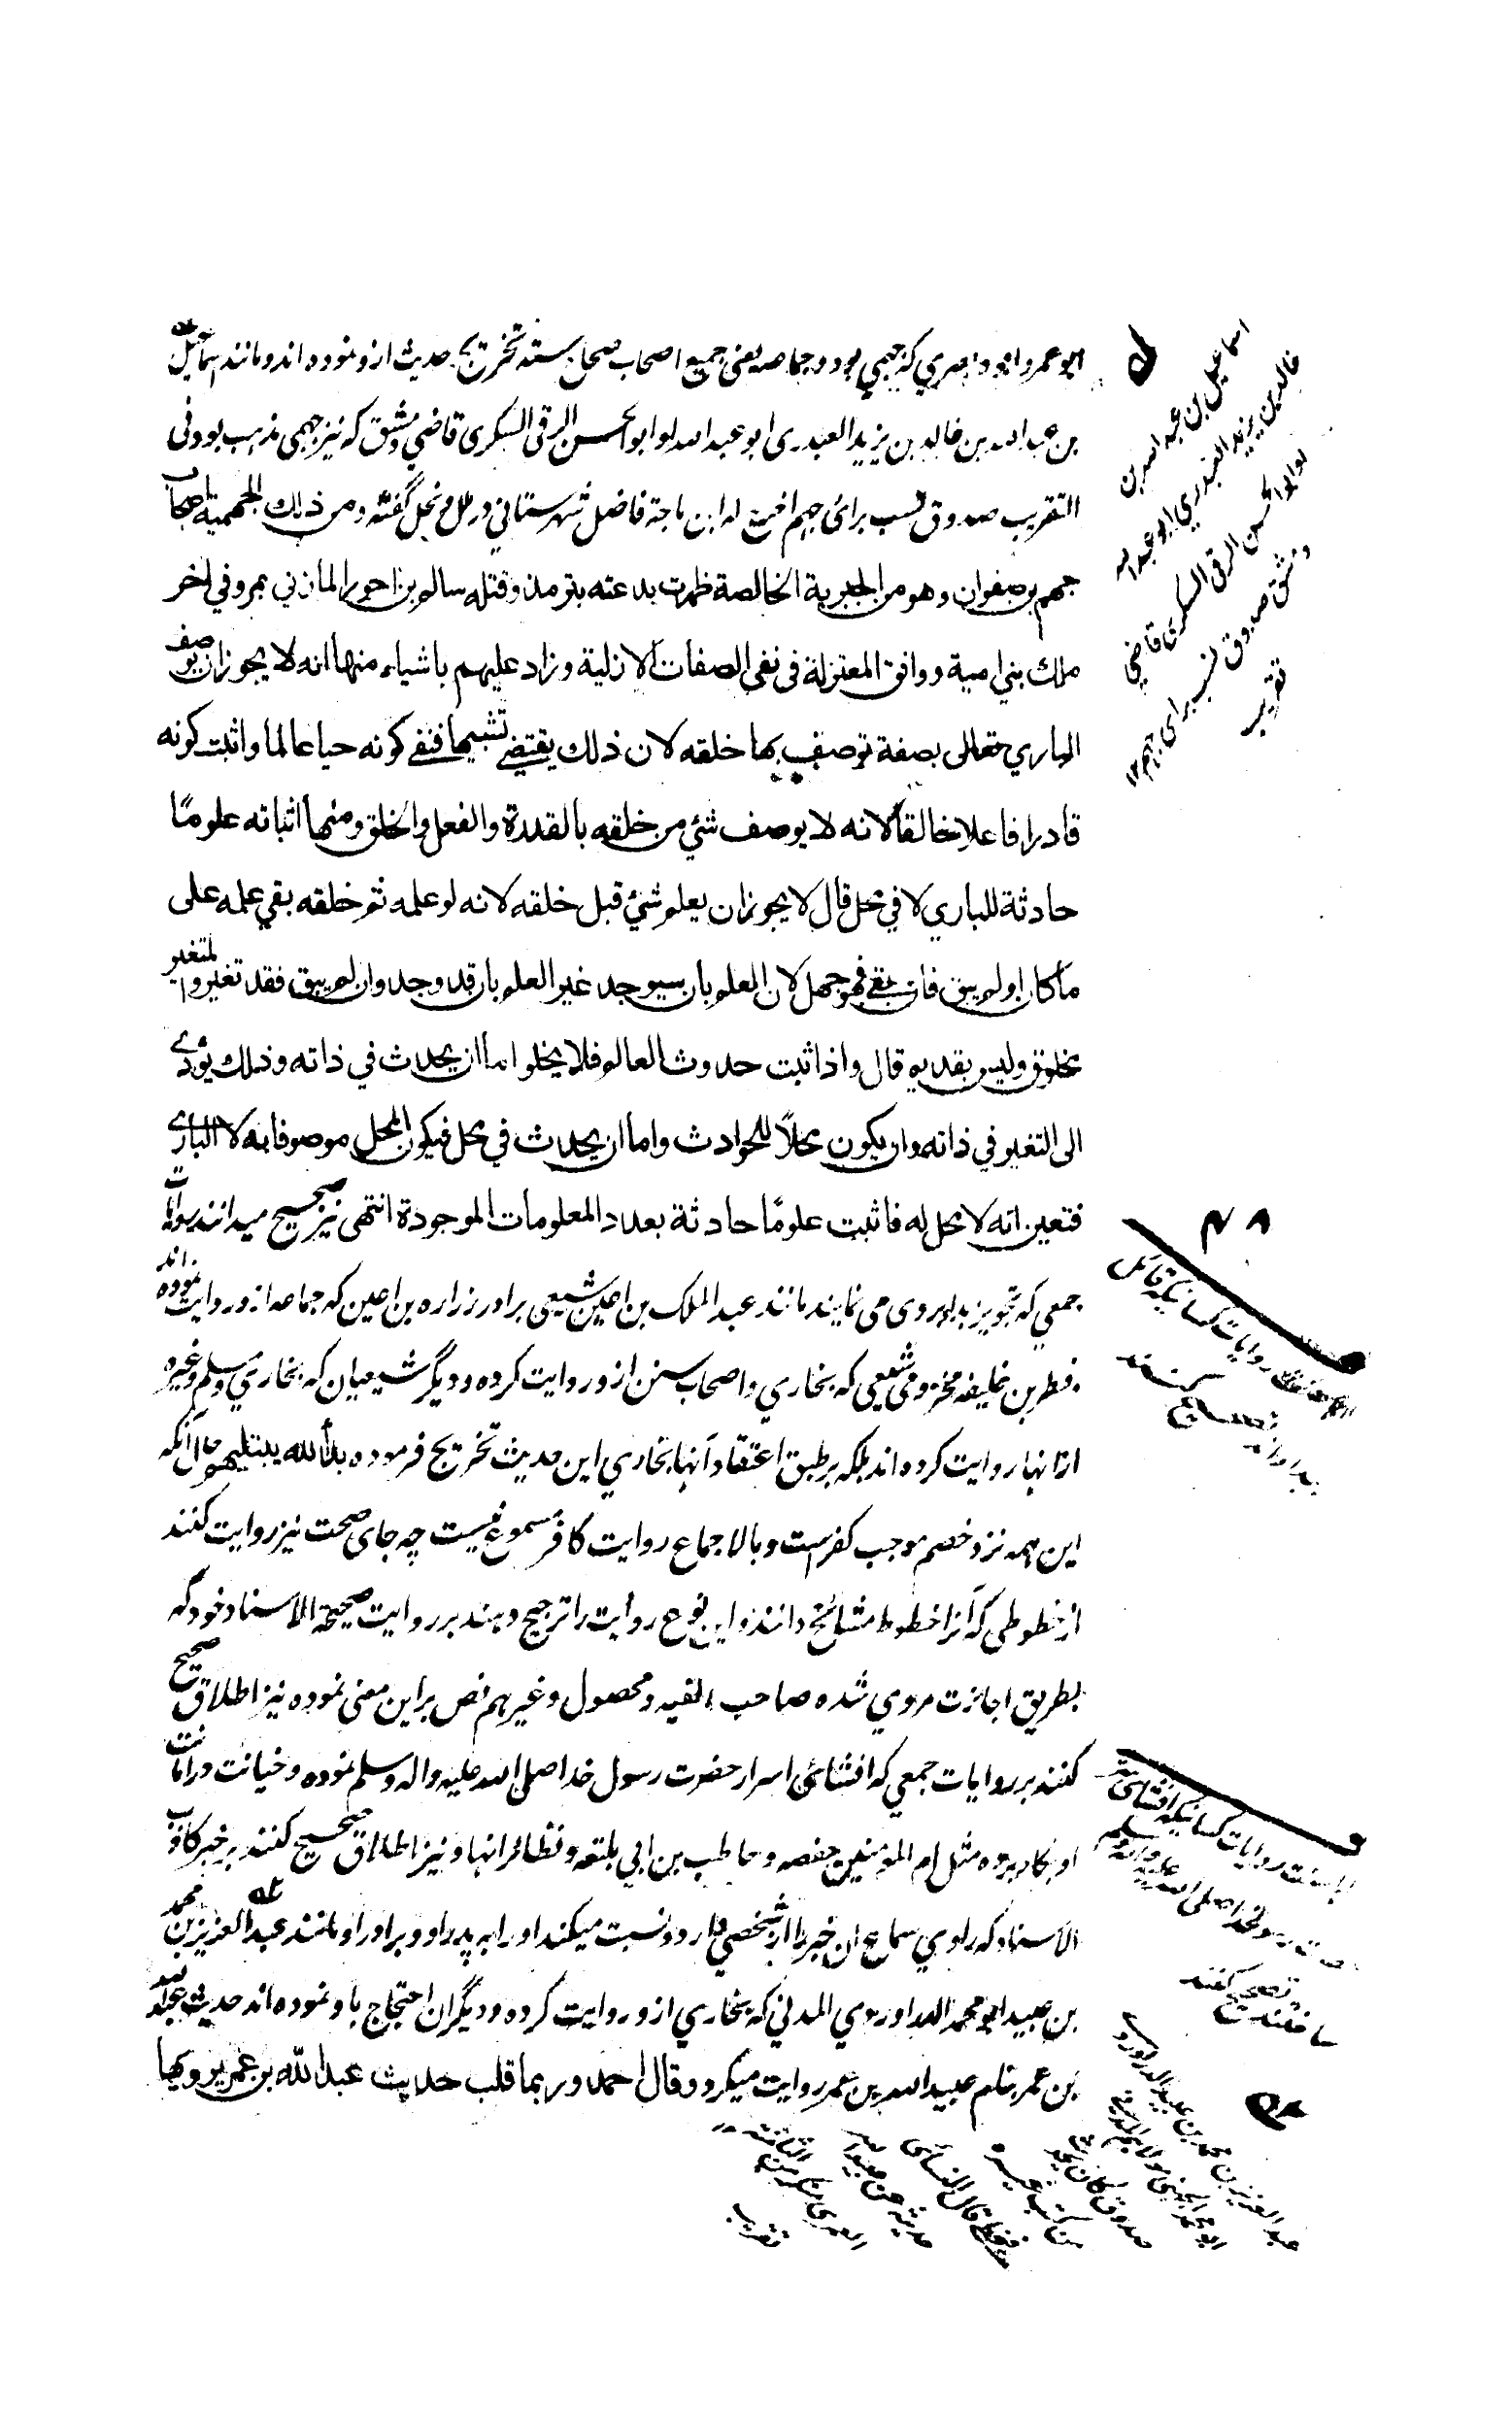 ابو عمرو ابو د بصري که جهمي بود و جماعه يعنى جميع اصحاب صحاح سته تخريج حديث ازو نموده اند و مانند اسماعيل
بن عبد الله بن خالد بن يزيد العبدرى ابو عبد الله او ابو الحسن الرقى السكرى قاضي دمشق كه نيز جهمى مذهب بود و فى
التقريب صدوق نسب براى جهم اخرج له ابن ماجة فاضل شهرستانى در ملل و نحل گفته و من ذلك الجهمية اصحاب
جهم بن صفوان وهو من الجبرية الخالصة ظهرت بدعته بترمذ و قتله سالم بن احوز المازني بمرو في اخر
ملك بني امية و وافق المعتزلة فى نفى الصفات الازلية وزاد عليهم باشياء منها انه لا يجوز ان يوصف
الباري تعالى بصفة توصف بها خلقه لان ذلك يقتضي تشبيها فنفى كونه حيا عالما واثبت كونه
قادرا فاعلا خالقا لانه لا يوصف شئ من خلقه بالقدرة والفعل والخلق ومنها اثباته علوما
حادثة للباري لا في محل قال لا يجوز ان يعلم شئ قبل خلقه لانه لو علمه ثم خلقه بقي علمه على
ما كان او لم يبق فان بقي فهو جهل لان العلم بان سيوجد غير العلم بان قد وجد وان لم يبق فقد تغير والمتغير
مخلوق وليس بقديم قال واذا ثبت حدوث العالم فلا يخلو اما ان يحدث في ذاته وذلك يؤدي
الى التغير في ذاته وان يكون محلا للحوادث واما ان يحدث في محل فيكون المحل موصوفا به لا الباري
فتعين انه لا محل له فاثبت علوما حادثة بعدد المعلومات الموجودة انتهى نيز صحيح ميدانند روايات
جمعي كه تجويز بدا بروى مى نمايند مانند عبد الملك بن اعين شيعى برادر زراره بن اعين كه جماعه ازو روايت نموده اند
و فطر بن خليفه مخزومى شيعى كه بخاري و اصحاب سنن ازو روايت كرده و ديگر شيعيان كه بخاري و مسلم و غيره
ازانها روايت كرده اند بلكه بر طبق اعتقاد آنها بخاري اين حديث تخريج فرموده بدأ لله يبتليهم حال آنكه
اين همه نزد خصم موجب كفر است و بالاجماع روايت كافر مسموع نيست چه جاى صحت نيز روايت كنند
از خطوطى كه آنرا خطوط مشائخ دانند و اين نوع روايت را ترجيح دهند بر روايت صحيحة الاسناد خود كه
بطريق اجازت مروي شده صاحب الفيه و محصول و غيرهم نص بر اين معنى نموده نيز اطلاق صحيح
كنند بر روايات جمعي كه افشائ اسرار حضرت رسول خدا صلى الله عليه واله وسلم نموده و خيانت در امانت
او بكار برده مثل ام المؤمنين حفصه و حاطب بن ابي بلتعه و نظائر انها و نيز اطلاق صحيح كنند بر خبر كاذب
الاسناد كه راوي سماع ان خبر را از شخصي دارد و نسبت ميكند او را به پدر او و برادر او مانند عبد العزيز بن محمد
بن عبيد ابو محمد الدراوردي المدني كه بخاري ازو روايت كرده و ديگران احتجاج با و نموده اند حديث عبد الله
بن عمر بنام عبيد الله بن عمر روايت ميكرد و قال احمد و ربما قلب حديث عبد الله بن عمر يرويها
اسماعيل بن عبد الله بن
خالد بن يزيد العبدري ابو عبد الله
او ابو الحسن الرقى السكرى قاضي
دمشق صدوق نسب براى جهم ١٢
تقريب
٤٨
روايات كسانيكه قائل
بدا اند تصحيح كنند
روايات كسانيكه افشائ
رسولخدا صلى الله عليه واله وسلم
ساختند تصحيح كنند
عبد العزيز بن محمد بن عبيد الدراوردي
ابو محمد الجهني مولاهم المدني
صدوق كان يحدث
من كتب غيره
فيخطئ قال النسائى
حديثه عن عبيد الله
العمري منكر من الثامنة
تقريب